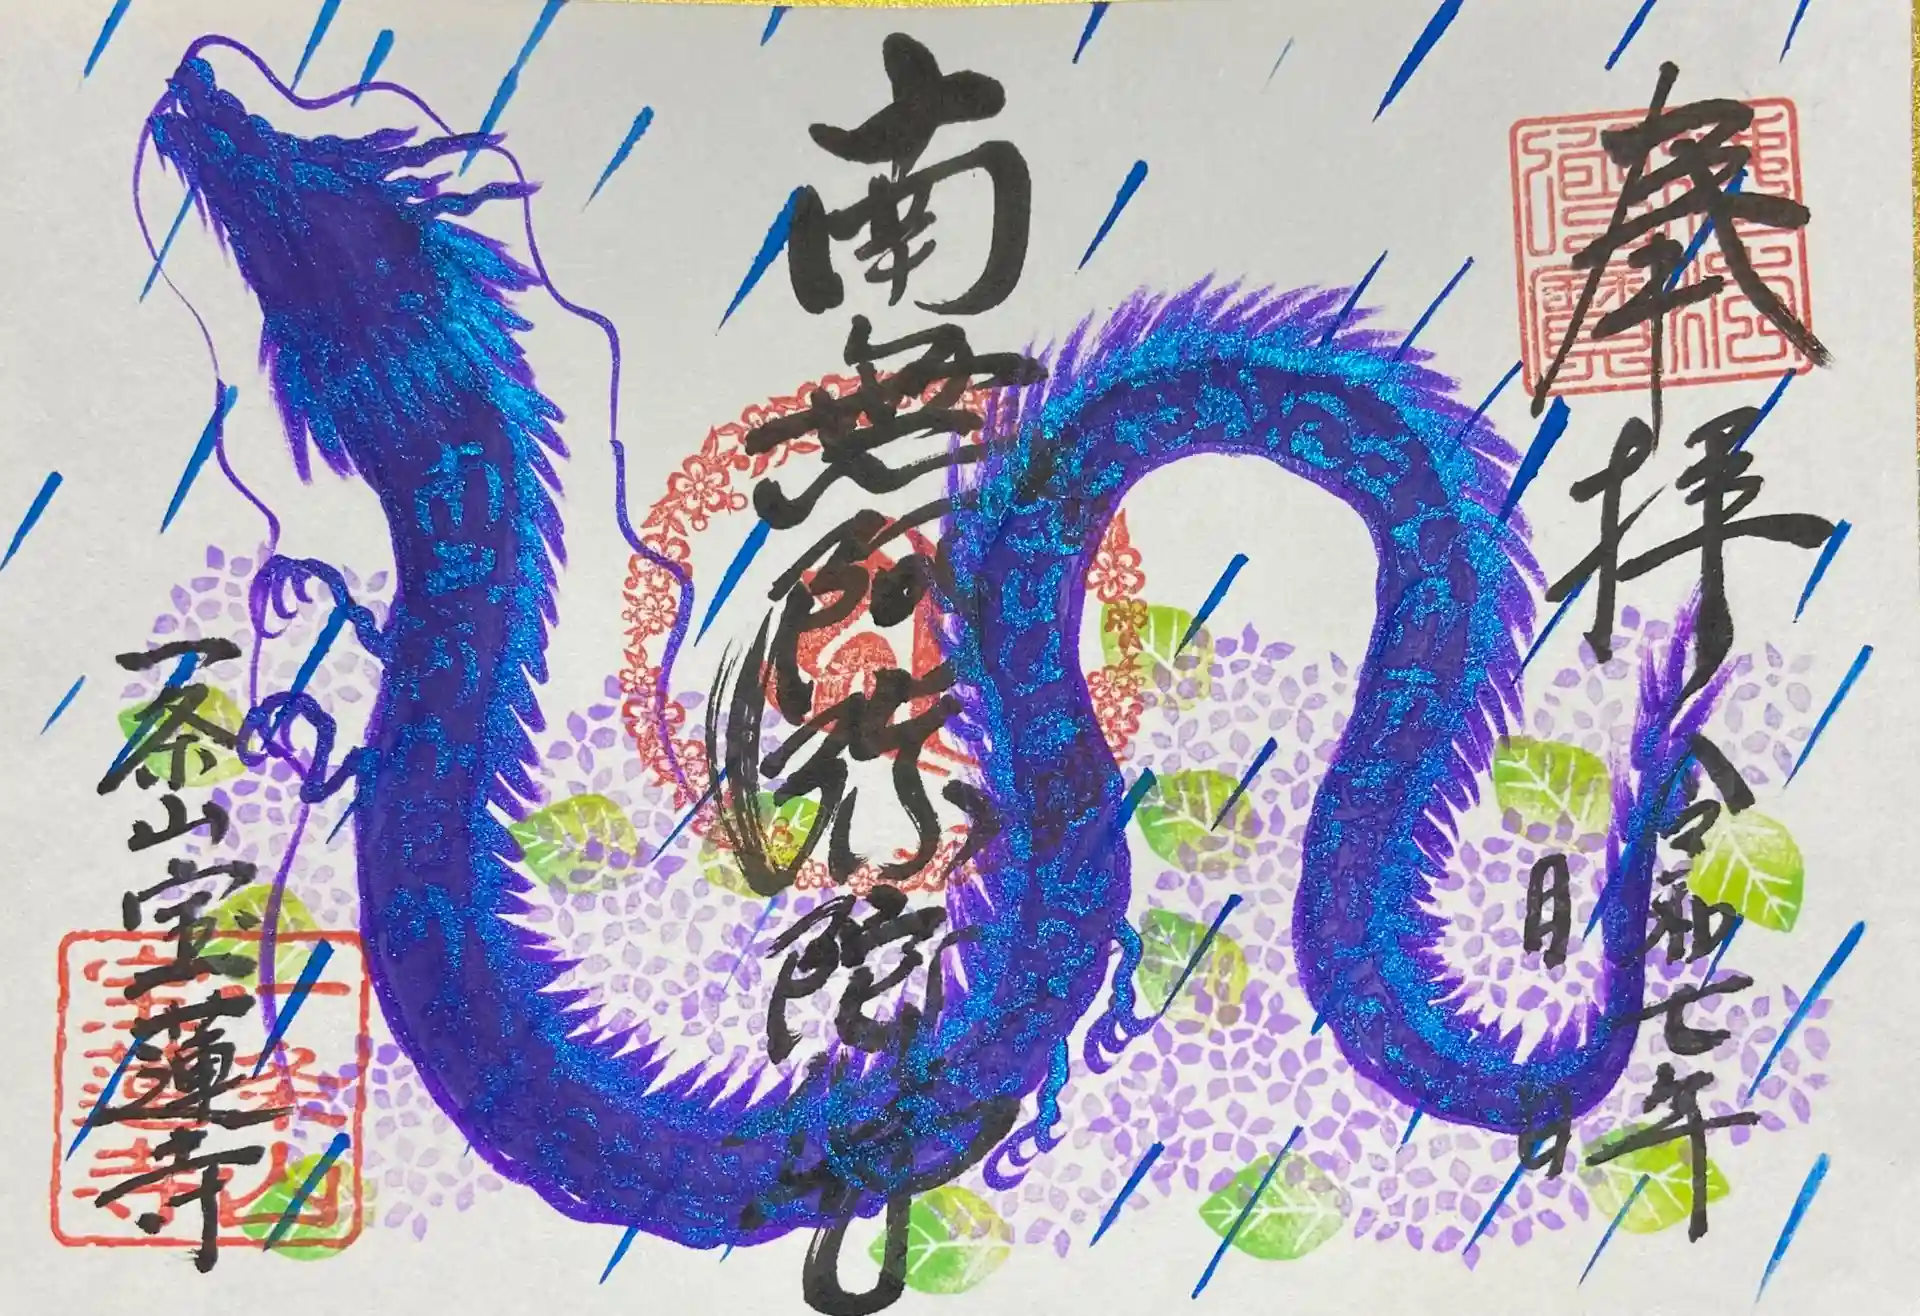 奉拝
令和七年
月 日
南無阿弥陀佛
一条山宝蓮寺
一条山
宝蓮寺